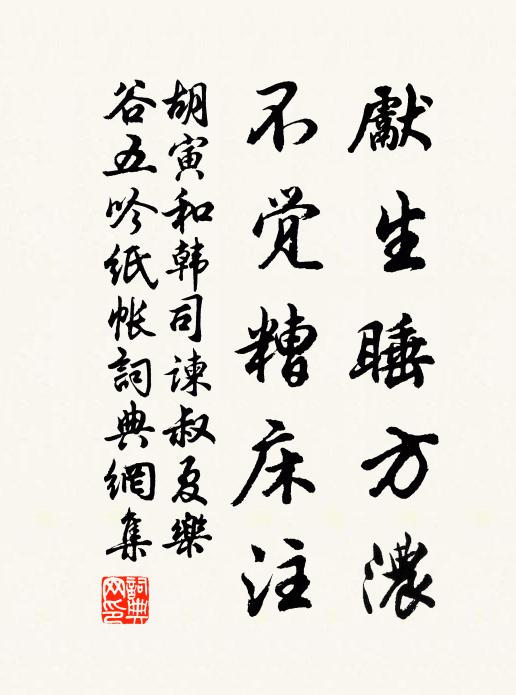 獻生睡方濃
不覚糟床注
胡寅和韩司諫叔夏樂
谷五吟纸帐詞典網集
詞典网印